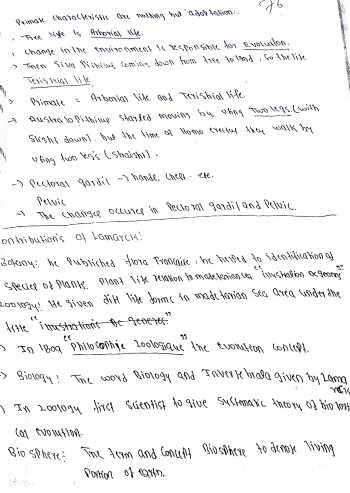 76
Primate characteristic are nothing but adaptation..
- Tree life is Arborial life.
, change in the environment is responsible for Evolution.
> Then Siva Pithicus coming down from tree to land, so the life
Terishial life
> Primate = Arborial life and Terishial life.
→ Austrolo Pithicus started moving by using two legs (with
slight down). but the time of Homo erectus they walk by
using two legs (straight).
→ Pectoral gardil → hands, chest etc.
Pelvic
- The changes occured in Pectoral gardil and Pelvic.
ontribution's of Lamarck:
Botany: he Published flora Francaise, he helped to Identification of
species of Plants. Plant life relation to maditarian sea "Illustration de geanry"
zoology: He given diff life forms in maditarian sea area under the
title "illustrations de generes."
> In 1809 "Philosophie zoologique" the evolution concept.
> Biology: The word Biology and Invertebrata given by Lama
rck
) In zoology first scientist to give systematic theory of biologi
cal evolution.
Bio sphere: The term and concept Biosphere to denote living
Portion of earth.